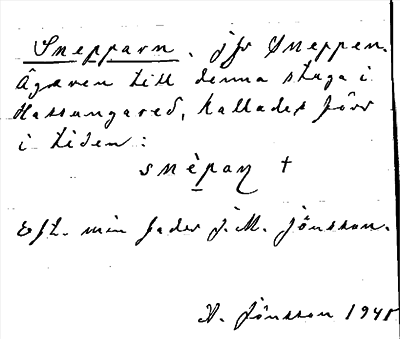 Snepparn. jfr Sneppen.
Ägaren till denna stuga i
Hassungared, kallades förr
i tiden:
snèpaɳ †
Eft. min fader J. M. Jönsson.
A. Jönsson 1945